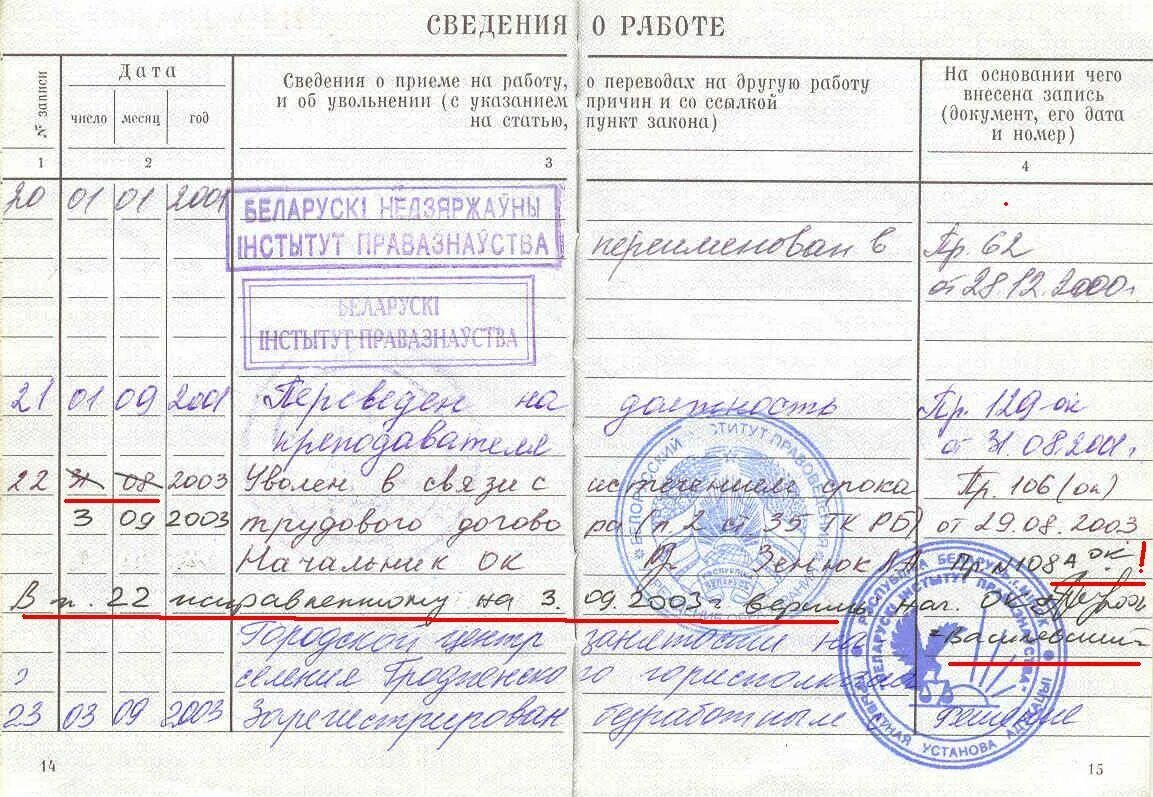 СВЕДЕНИЯ О РАБОТЕ
№ записи
Дата
число месяц год
Сведения о приеме на работу, о переводах на другую работу
и об увольнении (с указанием причин и со ссылкой
на статью, пункт закона)
На основании чего
внесена запись
(документ, его дата
и номер)
1 2 3 4
20 01 01 2001 БЕЛАРУСКІ НЕДЗЯРЖАЎНЫ
ІНСТЫТУТ ПРАВАЗНАЎСТВА переименован в Пр. 62
от 28.12.2000г
БЕЛАРУСКІ
ІНСТЫТУТ ПРАВАЗНАЎСТВА
21 01 09 2001 Переведен на должность Пр. 129-ок
преподавателя от 31.08.2001г
22 31 08 2003 Уволен в связи с истечением срока Пр. 106 (ок)
3 09 2003 трудового догово ра (п 2 ст 35 ТК РБ) от 29.08.2003
Начальник ОК Зенюк Пр. N108А ОК !
В п. 22 исправленному на 3. 09.2003г верить Нач. ОК
Василевский
Городской центр занятости на
селения Гродненско го горисполкома
23 03 09 2003 Зарегистрирован безработным решение
БЕЛОРУССКИЙ ИНСТИТУТ ПРАВОВЕДЕНИЯ
РЭСПУБЛІКА БЕЛАРУСЬ
БЕЛАРУСКІ ІНСТЫТУТ ПРАВАЗНАЎСТВА
УСТАНОВА АДУКАЦЫІ
14
15